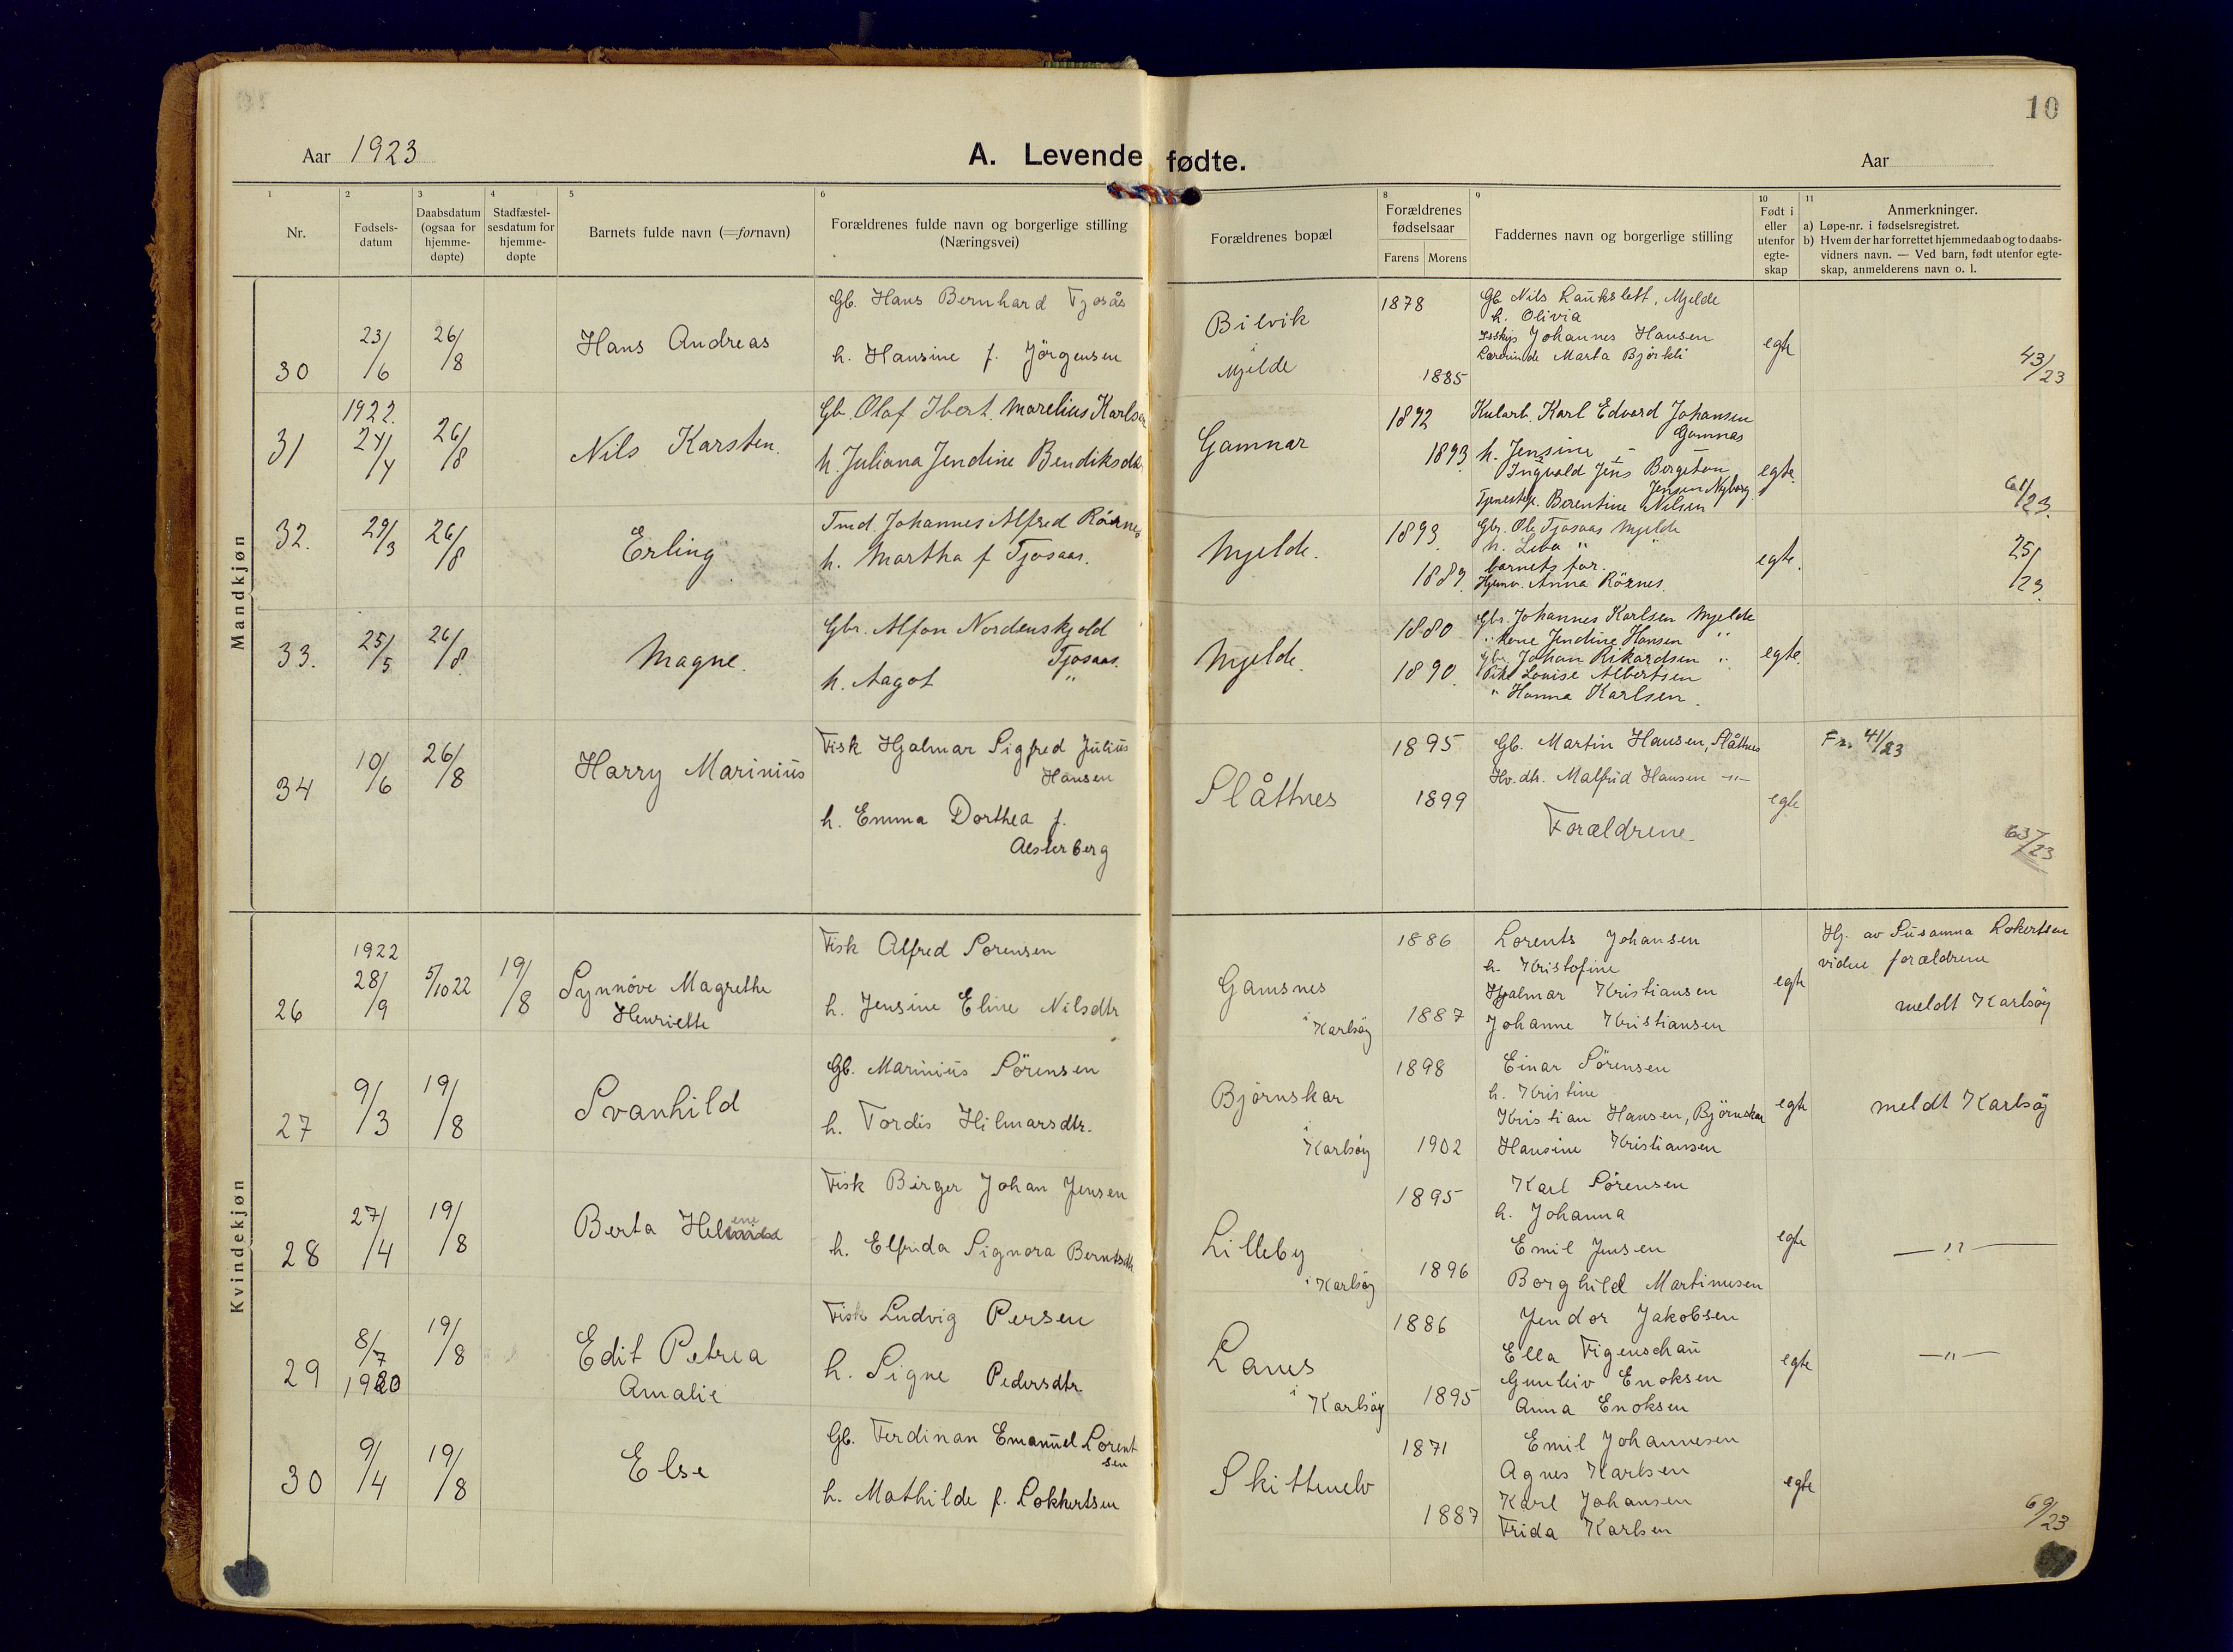 10
Aar 1923
A. Levende fødte.
Aar
1 2 3 4 5 6 8 9 10 11
Nr.
Fødsels-
datum
Daabsdatum
(ogsaa for
hjemme-
døpte)
Stadfæstel-
sesdatum for
hjemme-
døpte
Barnets fulde navn (=fornavn)
Forældrenes fulde navn og borgerlige stilling
(Næringsvei)
Forældrenes bopæl
Forældrenes
fødselsaar
Farens Morens
Faddernes navn og borgerlige stilling
Født i
eller
utenfor
egte-
skap
Anmerkninger.
a) Løpe-nr. i fødselsregistret.
b) Hvem der har forrettet hjemmedaab og to daabs-
vidners navn. — Ved barn, født utenfor egte-
skap, anmelderens navn o. l.
Mandkjøn
30 23/6 26/8
Hans Andreas
Gb. Hans Bernhard Tjosås
h. Hansine f. Jörgensen
Bilvik
i
Mjelde
1878
1885
Gb Nils Laukslett, Mjelde
h. Olivia
Johannes Hansen
Marta Björkli
egte
43/23
31 1922. 24/4 26/8
Nils Karsten.
Gb. Olaf Ibert Marelius Karlsen
h. Juliana Jendine Bendiksdtr
Gamnar
1892
1893
Kularb. Karl Edvard Johansen
Gamnas
h. Jensine -
Ingvald Jens Bergeton
Jensen Nyborg.
Tjenestep. Berentine Nilsen
egte.
61/23.
32. 29/3 26/8
Erling
Tmd. Johannes Alfred Rörnes
h. Martha f Tjosaas.
Mjelde.
1893.
1889.
Gbr. Ole Tjosaas Mjelde
h. Lena " "
barnets far.
Hjemv. Anna Rörnes.
egte.
25/23
33. 25/5 26/8.
Magne.
Gbr. Alfon Nordenskjold
Tjosaas.
h. Aagot "
Mjelde.
1880
1890.
Gbr. Johannes Karlsen Mjelde
" Kone Jendine Hansen "
Gbr. Johan Rikardsen "
Pike Louise Albertsen
" Hanna Karlsen.
egte.
34 10/6 26/8
Harry Marinius
Fisk Hjalmar Sigfred Julius
Hansen
h. Emma Dorthea f.
Aesterberg
Slåttnes
1895
1899
Gb. Martin Hansen, Slåttnes
Hv. dtr. Malfrid Hansen -"-
Forældrene
egte
Fr. 41/23
63/23
Kvindekjøn
26 1922 28/9 5/10 22 19/8
Synnöve Magrethe
Henriette
Fisk Alfred Sorensen
h. Jensine Eline Nilsdtr
Gamsnes
i Karlsöy
1886
1887
Lorents Johansen
h. Kristofine
Hjalmar Kristiansen
Johanne Kristiansen
egte
Hj. av Susanna Lokertsen
vidne forældrene
meldt Karlsöy
27 9/3 19/8
Svanhild
Gb. Marinius Sörensen
h. Tordis Hilmarsdtr.
Björnskar
i
Karlsöy
1898
1902
Einar Sörensen
h. Kristine
Kristian Hansen, Björnskar
Hansine Kristiansen
egte
meldt Karlsöy
28 27/4 19/8
Berta Helene
Fisk Birger Johan Jensen
h. Elfrida Signora Berntsdtr
Lilleby
i Karlsöy
1895
1896
Karl Sörensen
h. Johanna
Emil Jensen
Borghild Martinusen
egte
—"—
29 8/7 1920 19/8
Edit Petrea
Amalie
Fisk Ludvig Persen
h. Signe Pedersdtr
Lanes
i
Karlsöy
1886
1895
Jendor Jakobsen
Ella Figenschau
Gunleiv Enoksen
Anna Enoksen
egte
—"—
30 9/4 19/8
Else
Gb. Ferdinan Emanuel Lorent
sen
h. Mathilde f. Lokkertsen
Skittenelv
1871
1887
Emil Johannesen
Agnes Karlsen
Karl Johansen
Frida Karlsen
egte
69/23